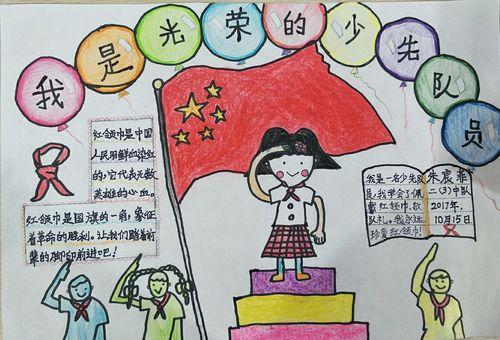 我是光荣的少先队员
红领巾是中国
人民用鲜血染红
的,它代表无数
英雄的心血。
红领巾是国旗的一角,象征
着革命的胜利。让我们踏着前
辈的脚印前进吧!
我是一名少先队
员,我学会了佩
戴红领巾、敬
队礼。我永远
珍爱红领巾!
朱宸菲
二(3)中队
2017年
10月15日